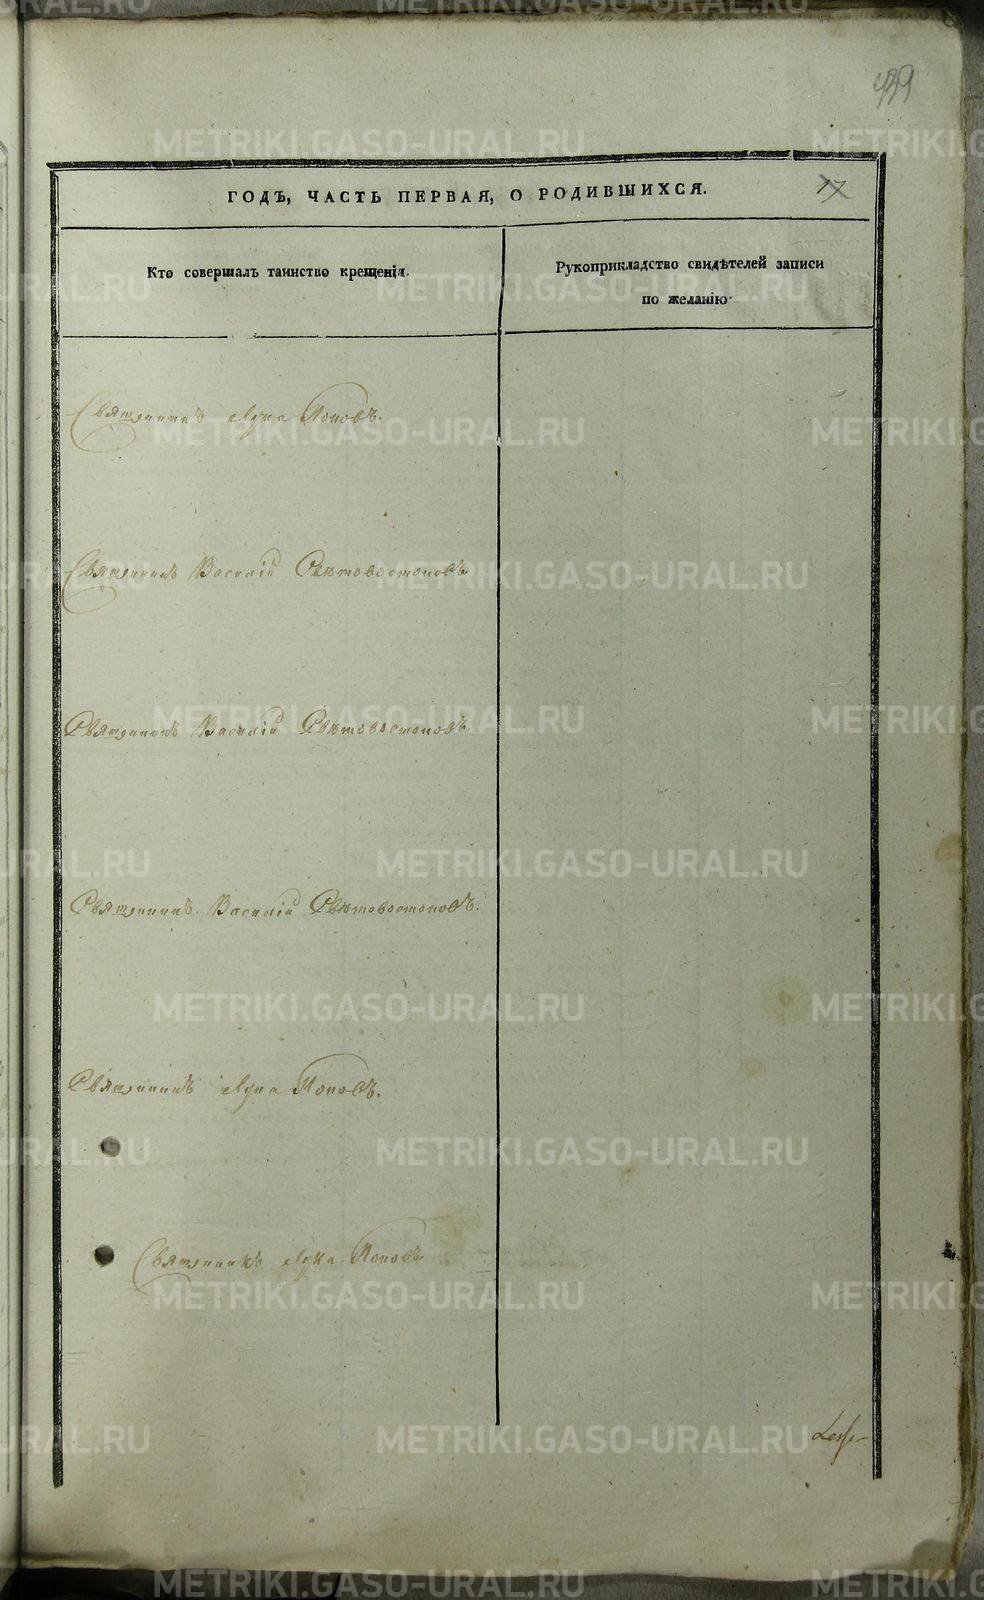 439
17
ГОДЪ, ЧАСТЬ ПЕРВАЯ, О РОДИВШИХСЯ.
Кто совершалъ таинство крещенія.
Рукоприкладство свидѣтелей записи
по желанію
Священникъ Лука Поповъ.
Священникъ Василій Свѣтовостоковъ
Священникъ Василій Свѣтовостоковъ.
Священникъ Василій Свѣтовостоковъ.
Священникъ Лука Поповъ.
Священникъ Лука Поповъ
METRIKI.GASO-URAL.RU